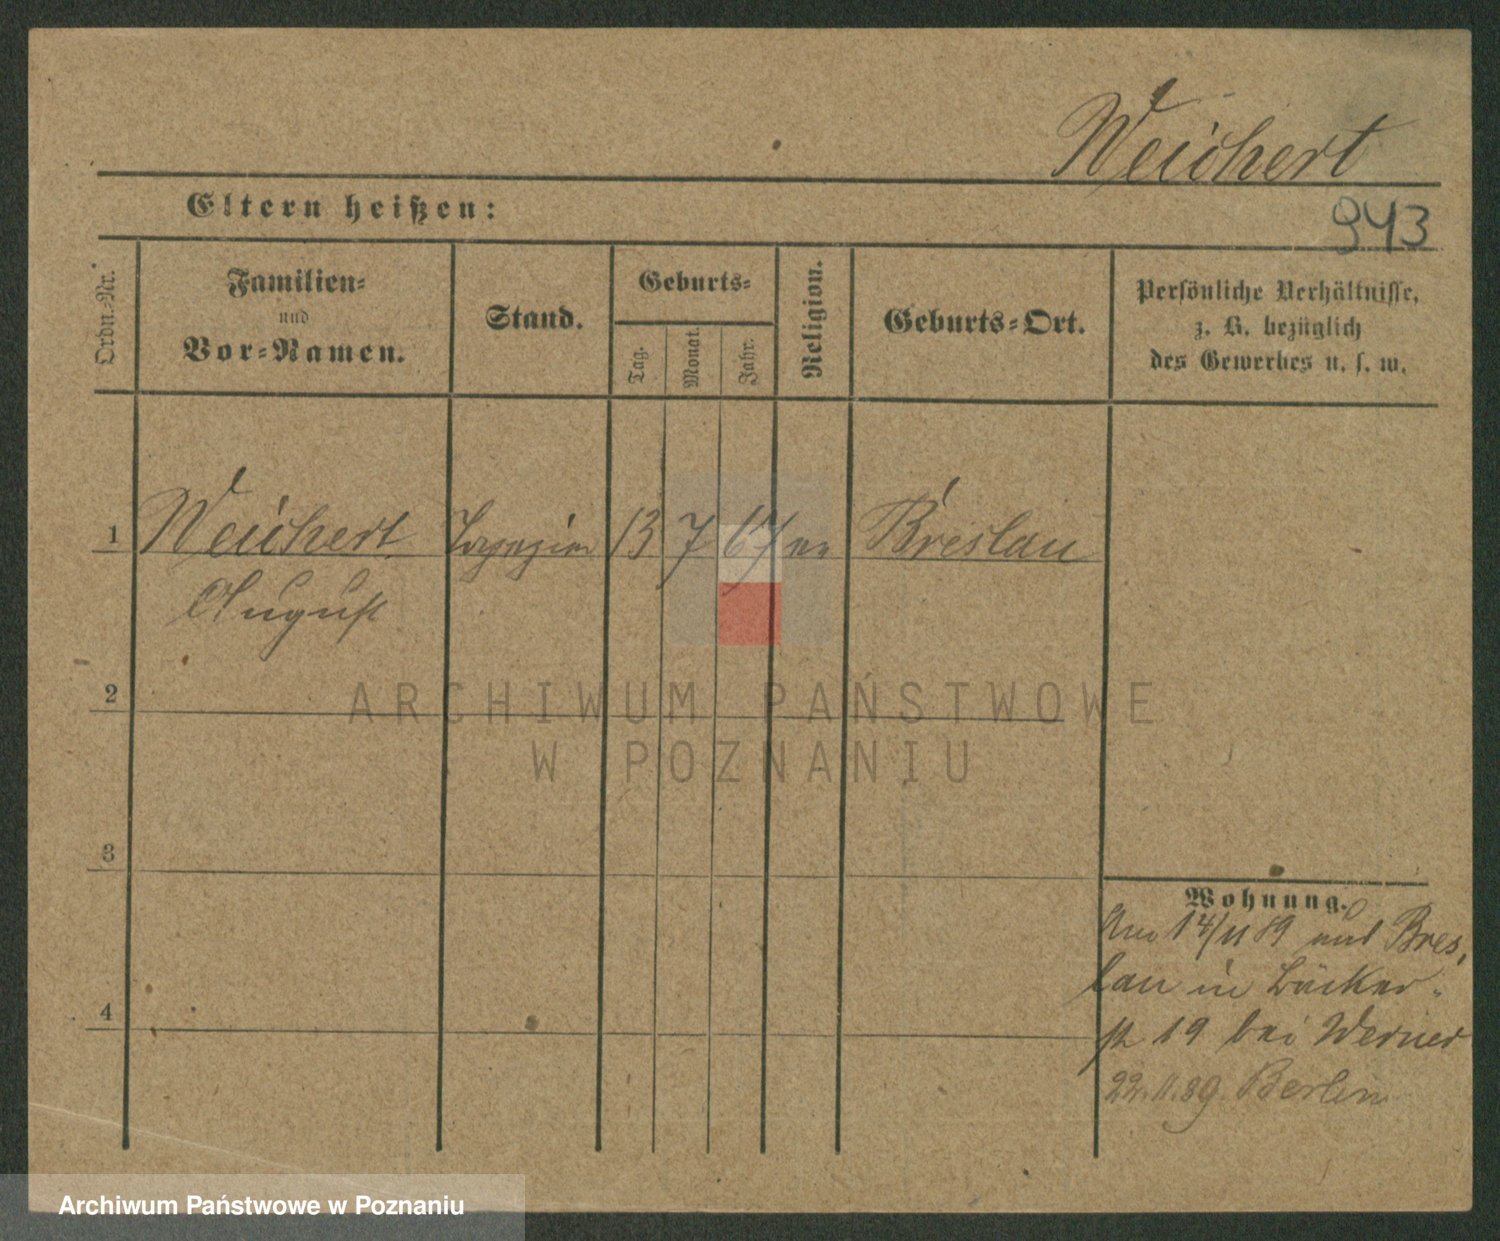 Weichert
Eltern heißen:
943
Ordn.-Nr.
Familien-
und
Vor-Namen.
Stand.
Geburts-
Tag.
Monat.
Jahr.
Religion.
Geburts-Ort.
Persönliche Verhältnisse,
z. B. bezüglich
des Gewerbes u. s. w.
1 Weichert Tapezier 13 7 67 ev Breslau
August
2
ARCHIWUM PAŃSTWOWE
W POZNANIU
3
Wohnung.
Am 14/11 89 aus Bres-
lau in Bäcker-
st 19 bei Werner
4
22.11.89. Berlin
Archiwum Państwowe w Poznaniu